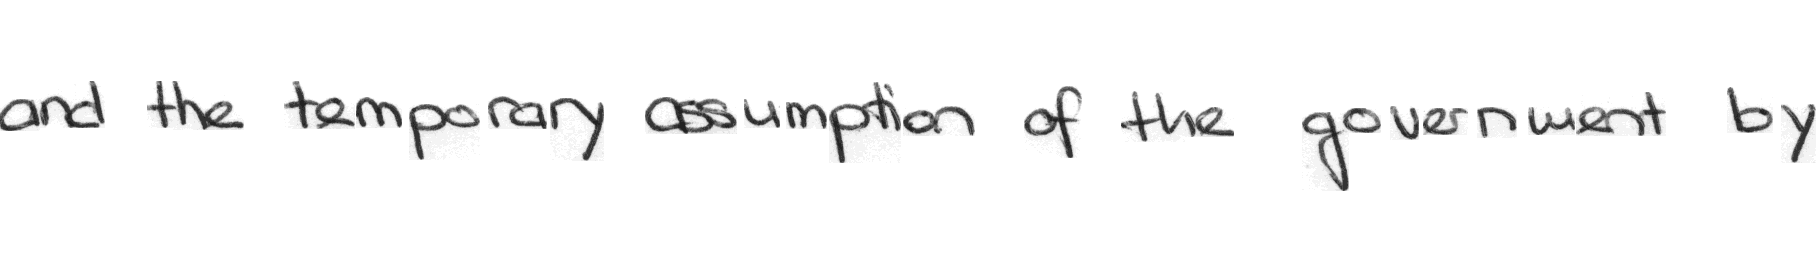 and the temporary assumption of the government by